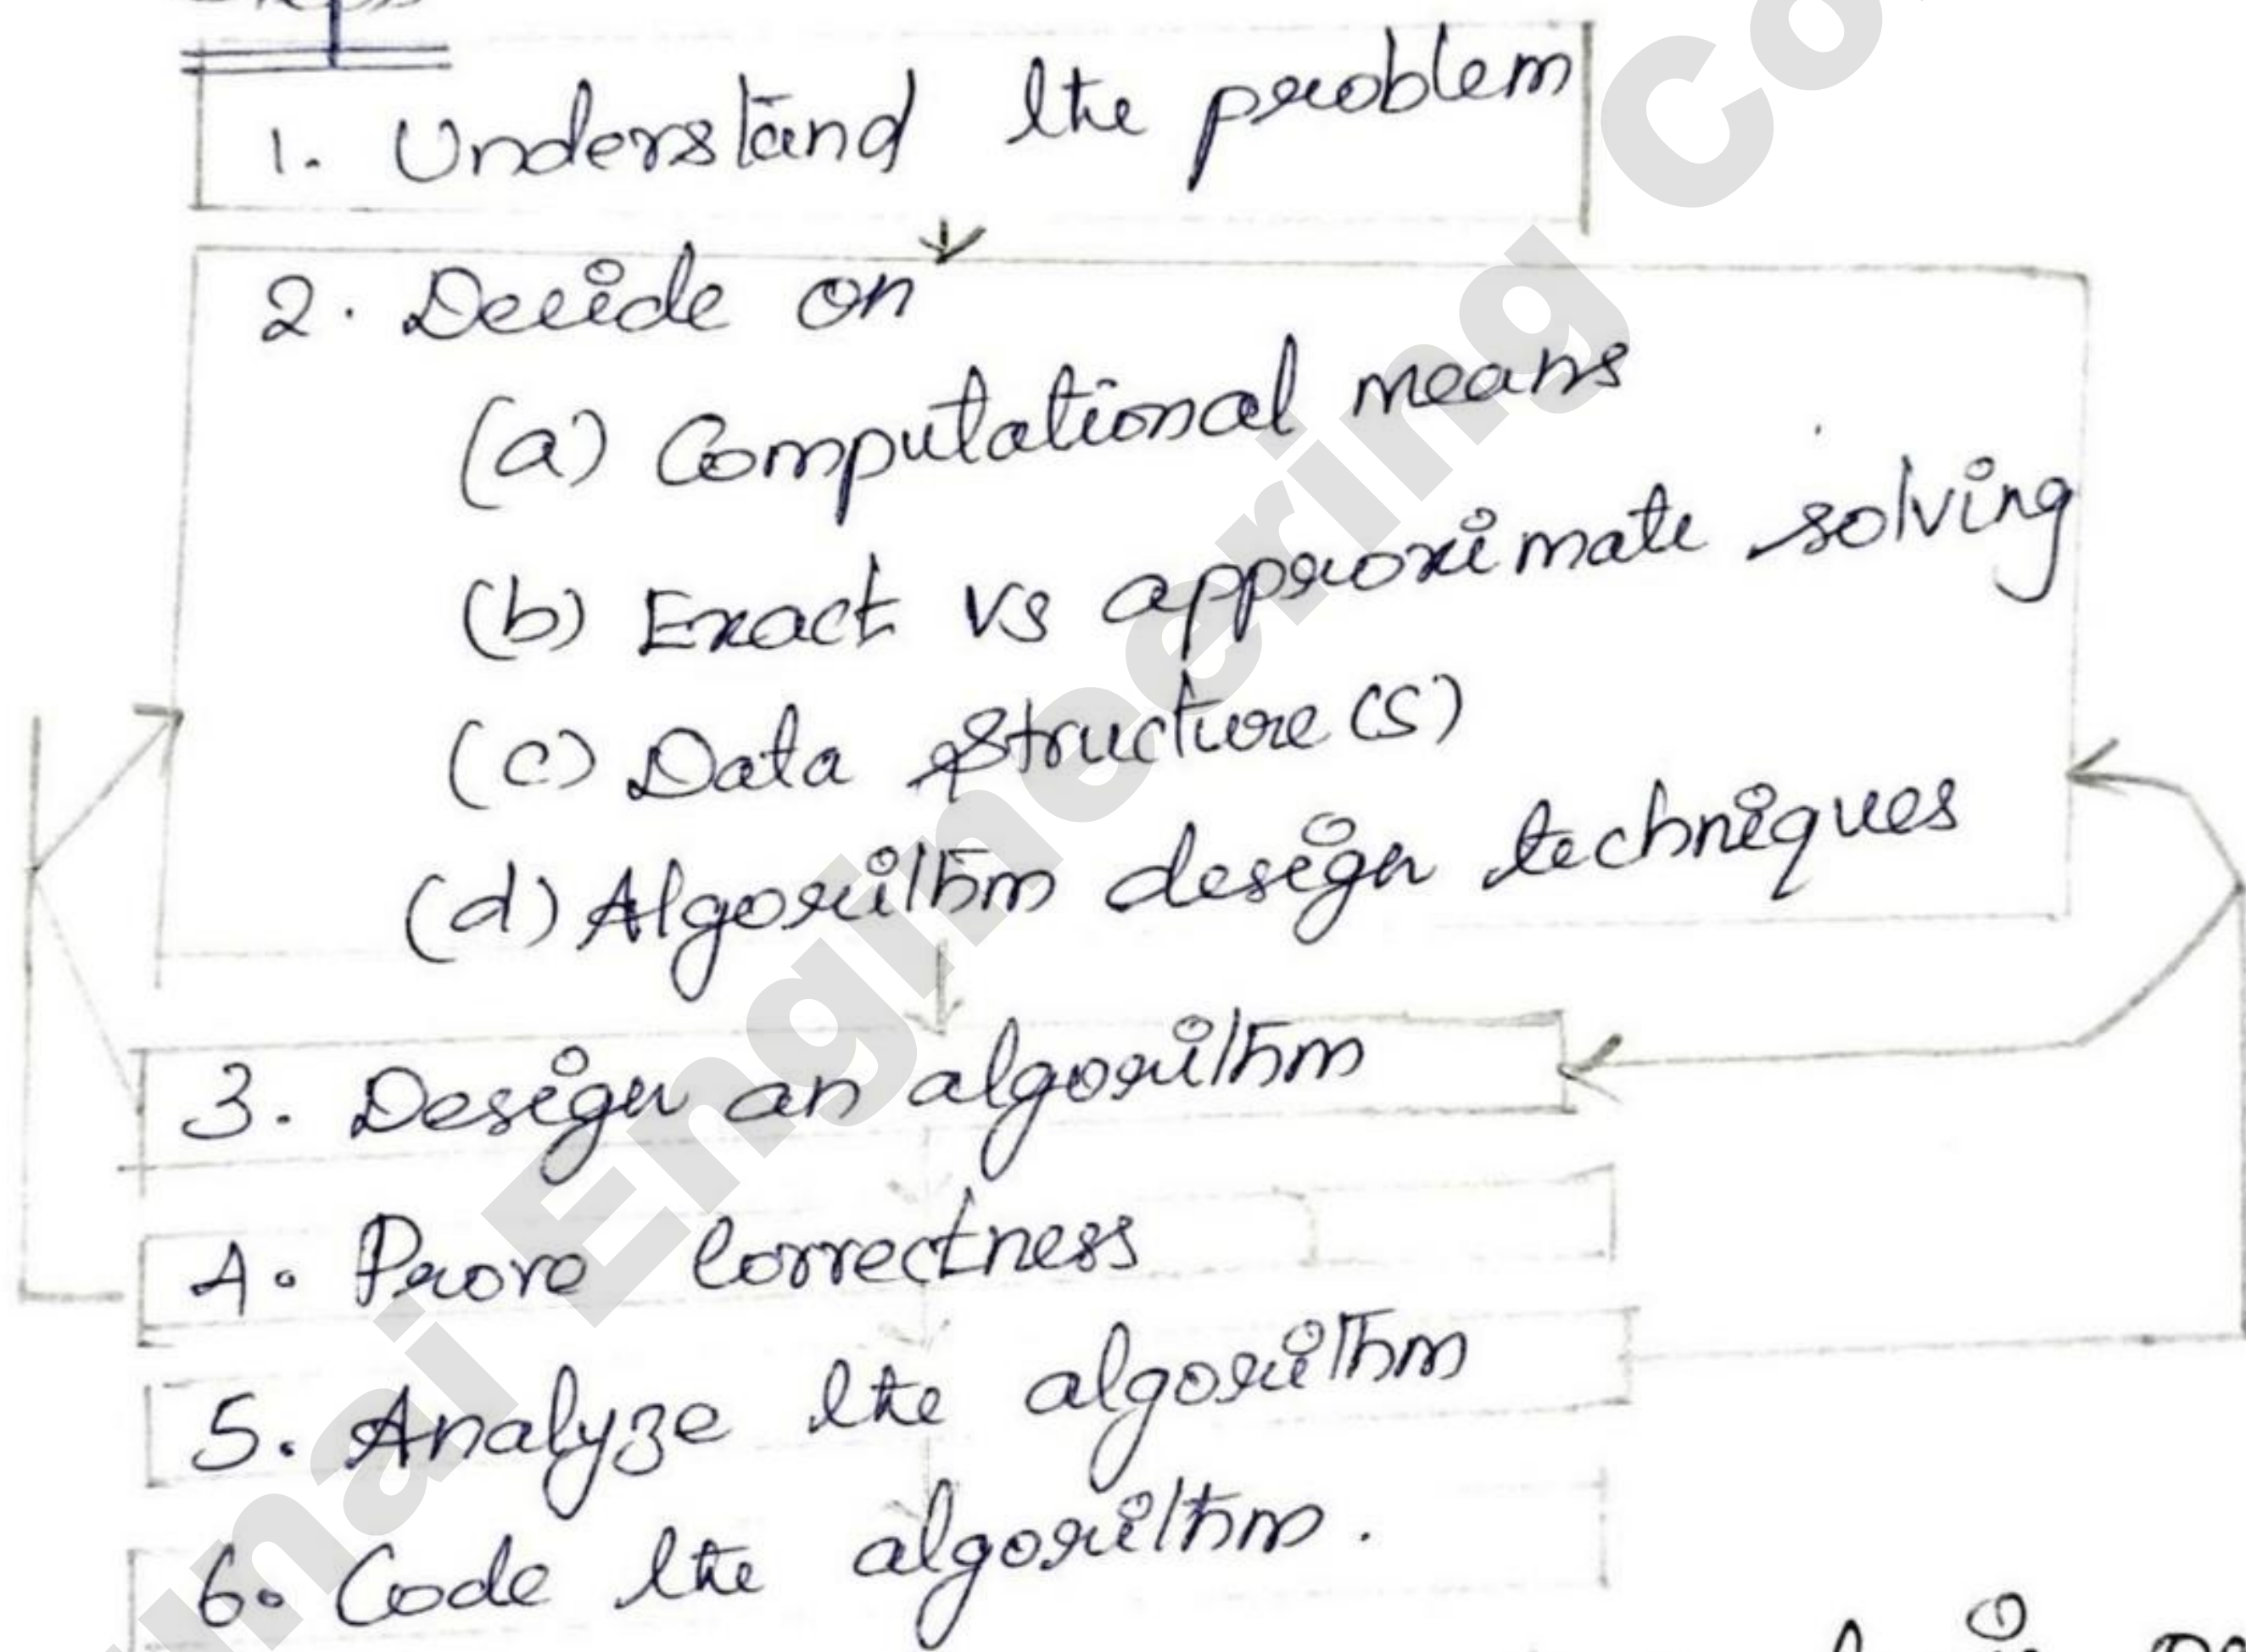 1. Understand the problem
2. Decide on
(a) Computational means
(b) Exact vs approximate solving
(c) Data structure(s)
(d) Algorithm design techniques
3. Design an algorithm
4. Prove correctness
5. Analyze the algorithm
6. Code the algorithm.
nai Engineering Co